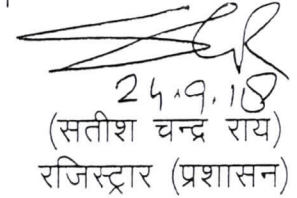 24.9.18
(सतीश चन्द्र राय)
रजिस्ट्रार (प्रशासन)